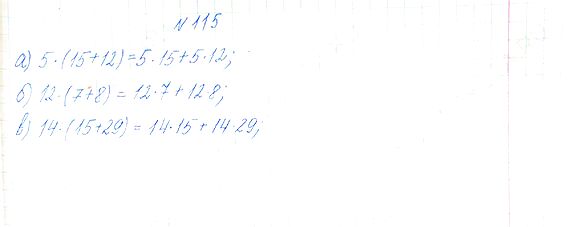 № 115
а) 5·(15+12)=5·15+5·12;
б) 12·(7+8) = 12·7+12·8;
в) 14·(15+29) = 14·15+14·29;